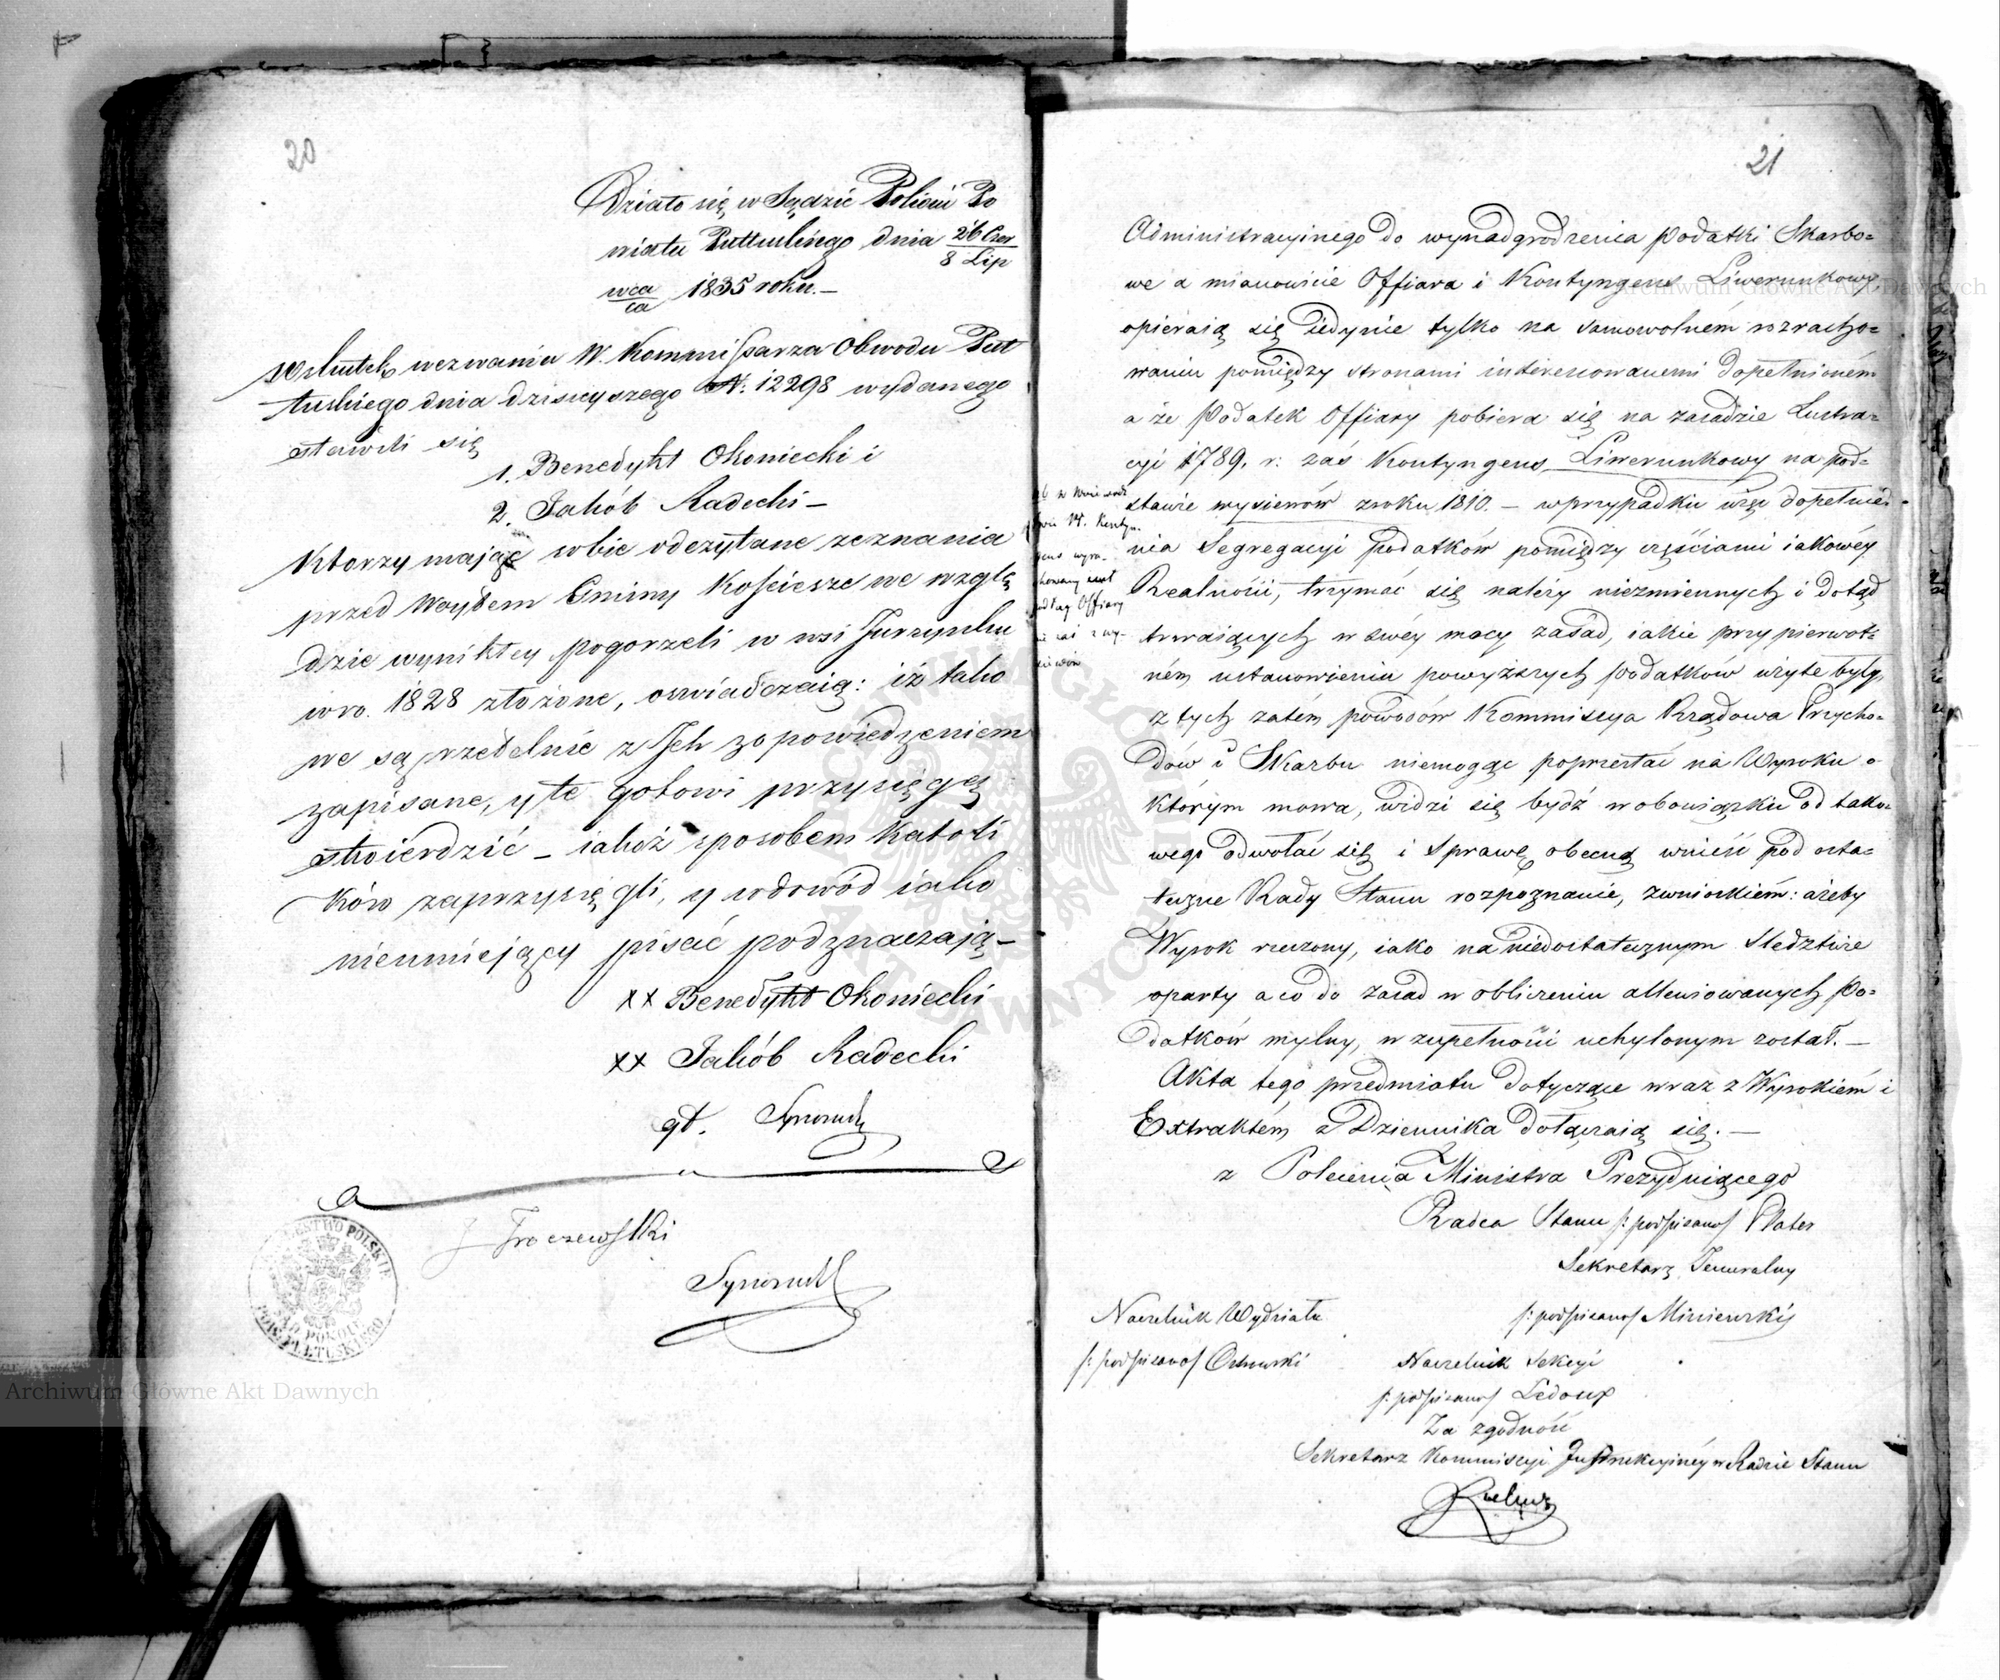 20
Działo się w Sądzie Policii Po
wiatu Pułtuskiego dnia 26 Czer
8 Lip
wca
ca
1835 roku. —
Wskutek wezwania W. Kommissarza Obwodu Puł
tuskiego dnia dzisieyszego N: 12298 wydanego
stawili się
1. Benedykt Okoniecki i
2. Jakób Radecki —
Ktorzy mając sobie odczytane zeznania
przed Woytem Gminy Kosciesze we wzglę
dzie wynikłey pogorzeli w wsi Jurzynku
w ro. 1828 złożone, oswiadczaią: iż tako
we są rzetelnie z Ich zapowiedzeniem
zapisane, y te gotowi przysięgą
stwierdzić — iakoż sposobem Katoli
ków zaprzysięgli, y w dowód iako
nieumiejący pisać podznaczają —
xx Benedykt Okoniecki
xx Jakób Radecki
Troczewsski
KRÓLESTWO POLSKIE
SĄD POKOIU
POW. PUŁTUSKIEGO
21
Administracyinego do wynadgrodzenia Podatki Skarbo=
we a mianowicie Offiara i Kontyngens Liwerunkowy,
opieraią się iedynie tylko na samowolném rozracho=
waniu pomiędzy stronami interessowanemi dopełnioném
a że Podatek Offiary pobiera się na zasadzie Lustra=
cyi 1789. r: zaś Kontyngens Liwerunkowy na pod=
stawie wysiewów z roku 1810. — w przypadku więc dopełnie=
nia Segregacyi Podatków pomiędzy częściami iakowéy
Realności, trzymać się należy niezmiennych i dotąd
trwaiących w swéy mocy zasad, iakie przy pierwot=
ném ustanowieniu powyższych podatków użyte były,
z tych zatém powodów Kommissya Rządowa Przycho=
dów i Skarbu niemogąc poprzestać na Wyroku o
którym mowa, widzi się bydź w obowiązku od tako=
wego odwołać się i Sprawę obecną wnieść pod osta=
teczne Rady Stanu rozpoznanie, z wnioskiem: ażeby
Wyrok rzeczony, iako na niedostatecznym śledztwie
oparty a co do zasad w obliczeniu allewiowanych Po=
datków mylny, w zupełności uchylonym został. —
Akta tego przedmiotu dotyczące wraz z Wyrokiem i
Extraktem z Dziennika dołączaią się. —
z Polecenia Ministra Prezyduiącego
Radca Stanu /: podpisano/ Plater
Sekretarz Jeneralny
/: podpisano/
Naczelnik Wydziału
/: podpisano/ Ostrowski
Naczelnik Sekcyi
/: podpisano/ Ledoux
Za zgodność
Sekretarz Kommissyi Instrukcyinéy w Radzie Stanu
Archiwum Główne Akt Dawnych
Archiwum Główne Akt Dawnych
ARCHIWUM GŁÓWNE AKT DAWNYCH